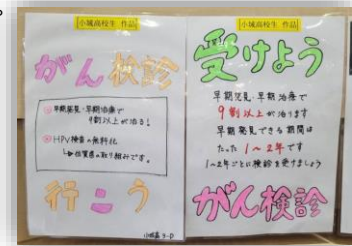 小城高校生 作品
がん検診
早期発見・早期治療で
9割以上が治る!
HPV検査の無料化
↳佐賀県の取り組みです。
行こう
小城高校生 作品
受けよう
早期発見・早期治療で
9割以上が治ります
早期発見できる期間は
たった1〜2年です
1〜2年ごとに検診を受けましょう
がん検診